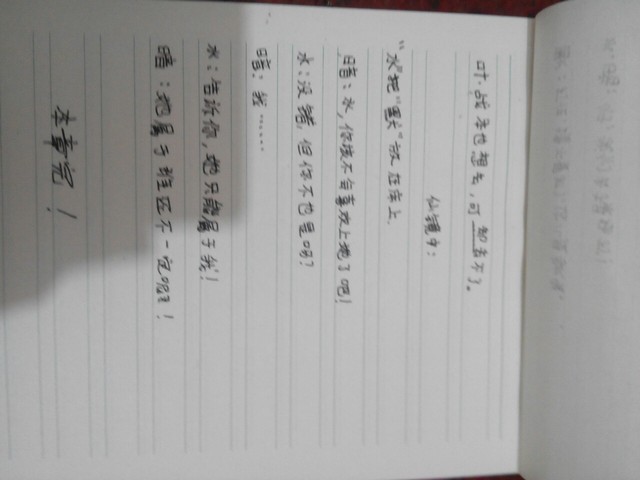 叶：战不也想去，可却去不了。
仙镜中：
“水”把“墨”放在床上
暗：水，你该不会喜欢上她了吧！
水：没错，但你不也是吗？
暗：我……
水：告诉你，她只能属于我！
暗：她属于谁还不一定呢！
本章完！